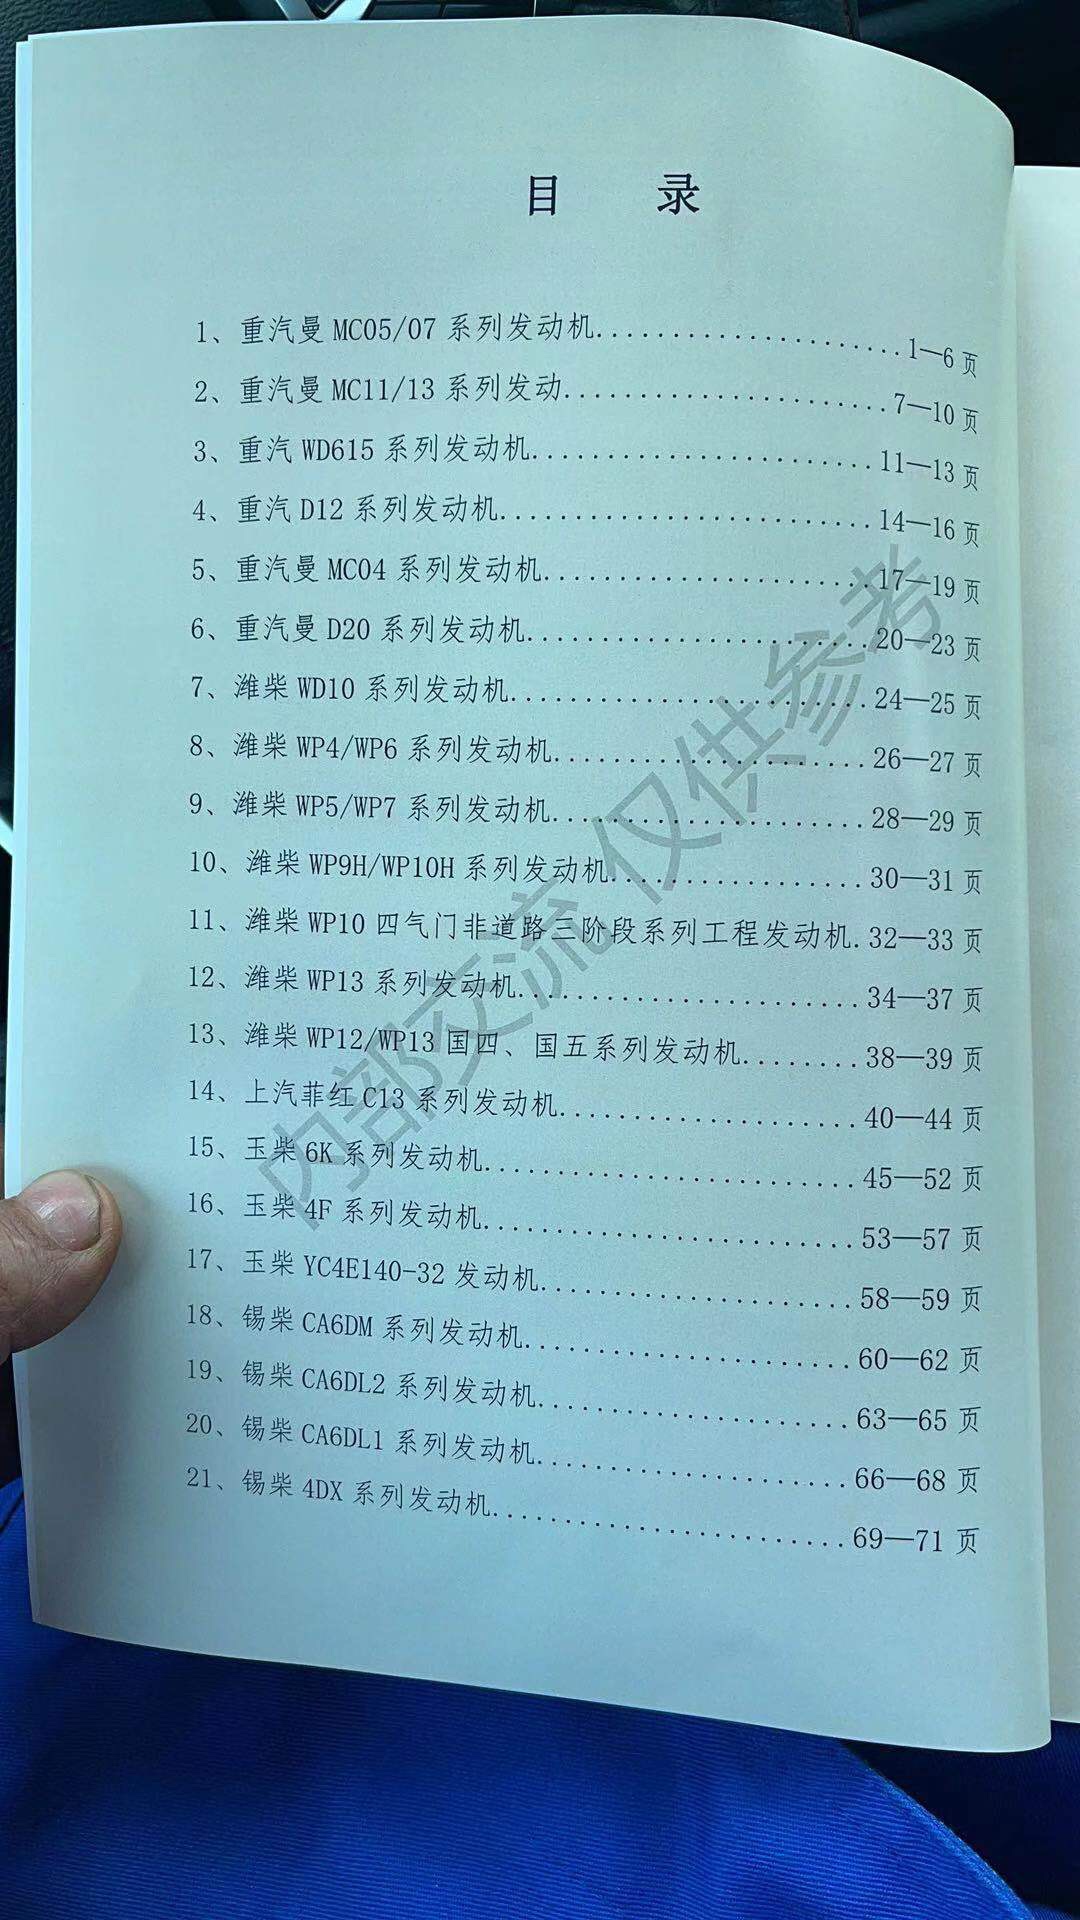 目 录
1、重汽曼 MC05/07 系列发动机....................1—6 页
2、重汽曼 MC11/13 系列发动......................7—10 页
3、重汽 WD615 系列发动机.......................11—13 页
4、重汽 D12 系列发动机.........................14—16 页
5、重汽曼 MC04 系列发动机......................17—19 页
6、重汽曼 D20 系列发动机.......................20—23 页
7、潍柴 WD10 系列发动机........................24—25 页
8、潍柴 WP4/WP6 系列发动机.....................26—27 页
9、潍柴 WP5/WP7 系列发动机.....................28—29 页
10、潍柴 WP9H/WP10H 系列发动机.................30—31 页
11、潍柴 WP10 四气门非道路三阶段系列工程发动机.32—33 页
12、潍柴 WP13 系列发动机.......................34—37 页
13、潍柴 WP12/WP13 国四、国五系列发动机........38—39 页
14、上汽菲红 C13 系列发动机....................40—44 页
15、玉柴 6K 系列发动机.........................45—52 页
16、玉柴 4F 系列发动机.........................53—57 页
17、玉柴 YC4E140-32 发动机.....................58—59 页
18、锡柴 CA6DM 系列发动机......................60—62 页
19、锡柴 CA6DL2 系列发动机.....................63—65 页
20、锡柴 CA6DL1 系列发动机.....................66—68 页
21、锡柴 4DX 系列发动机........................69—71 页
内部交流 仅供参考